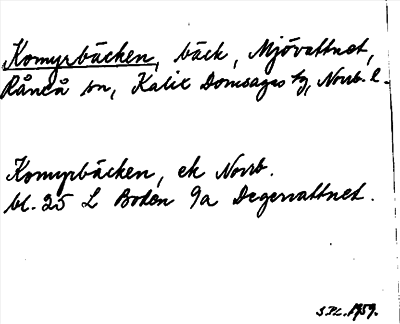 Komyrbäcken, bäck, Mjövattnet,
Råneå sn, Kalix Domsagas tg, Norrb. l.
Komyrbäcken, ek Norrb.
bl. 25 L Boden 9a Degervattnet.
1959.